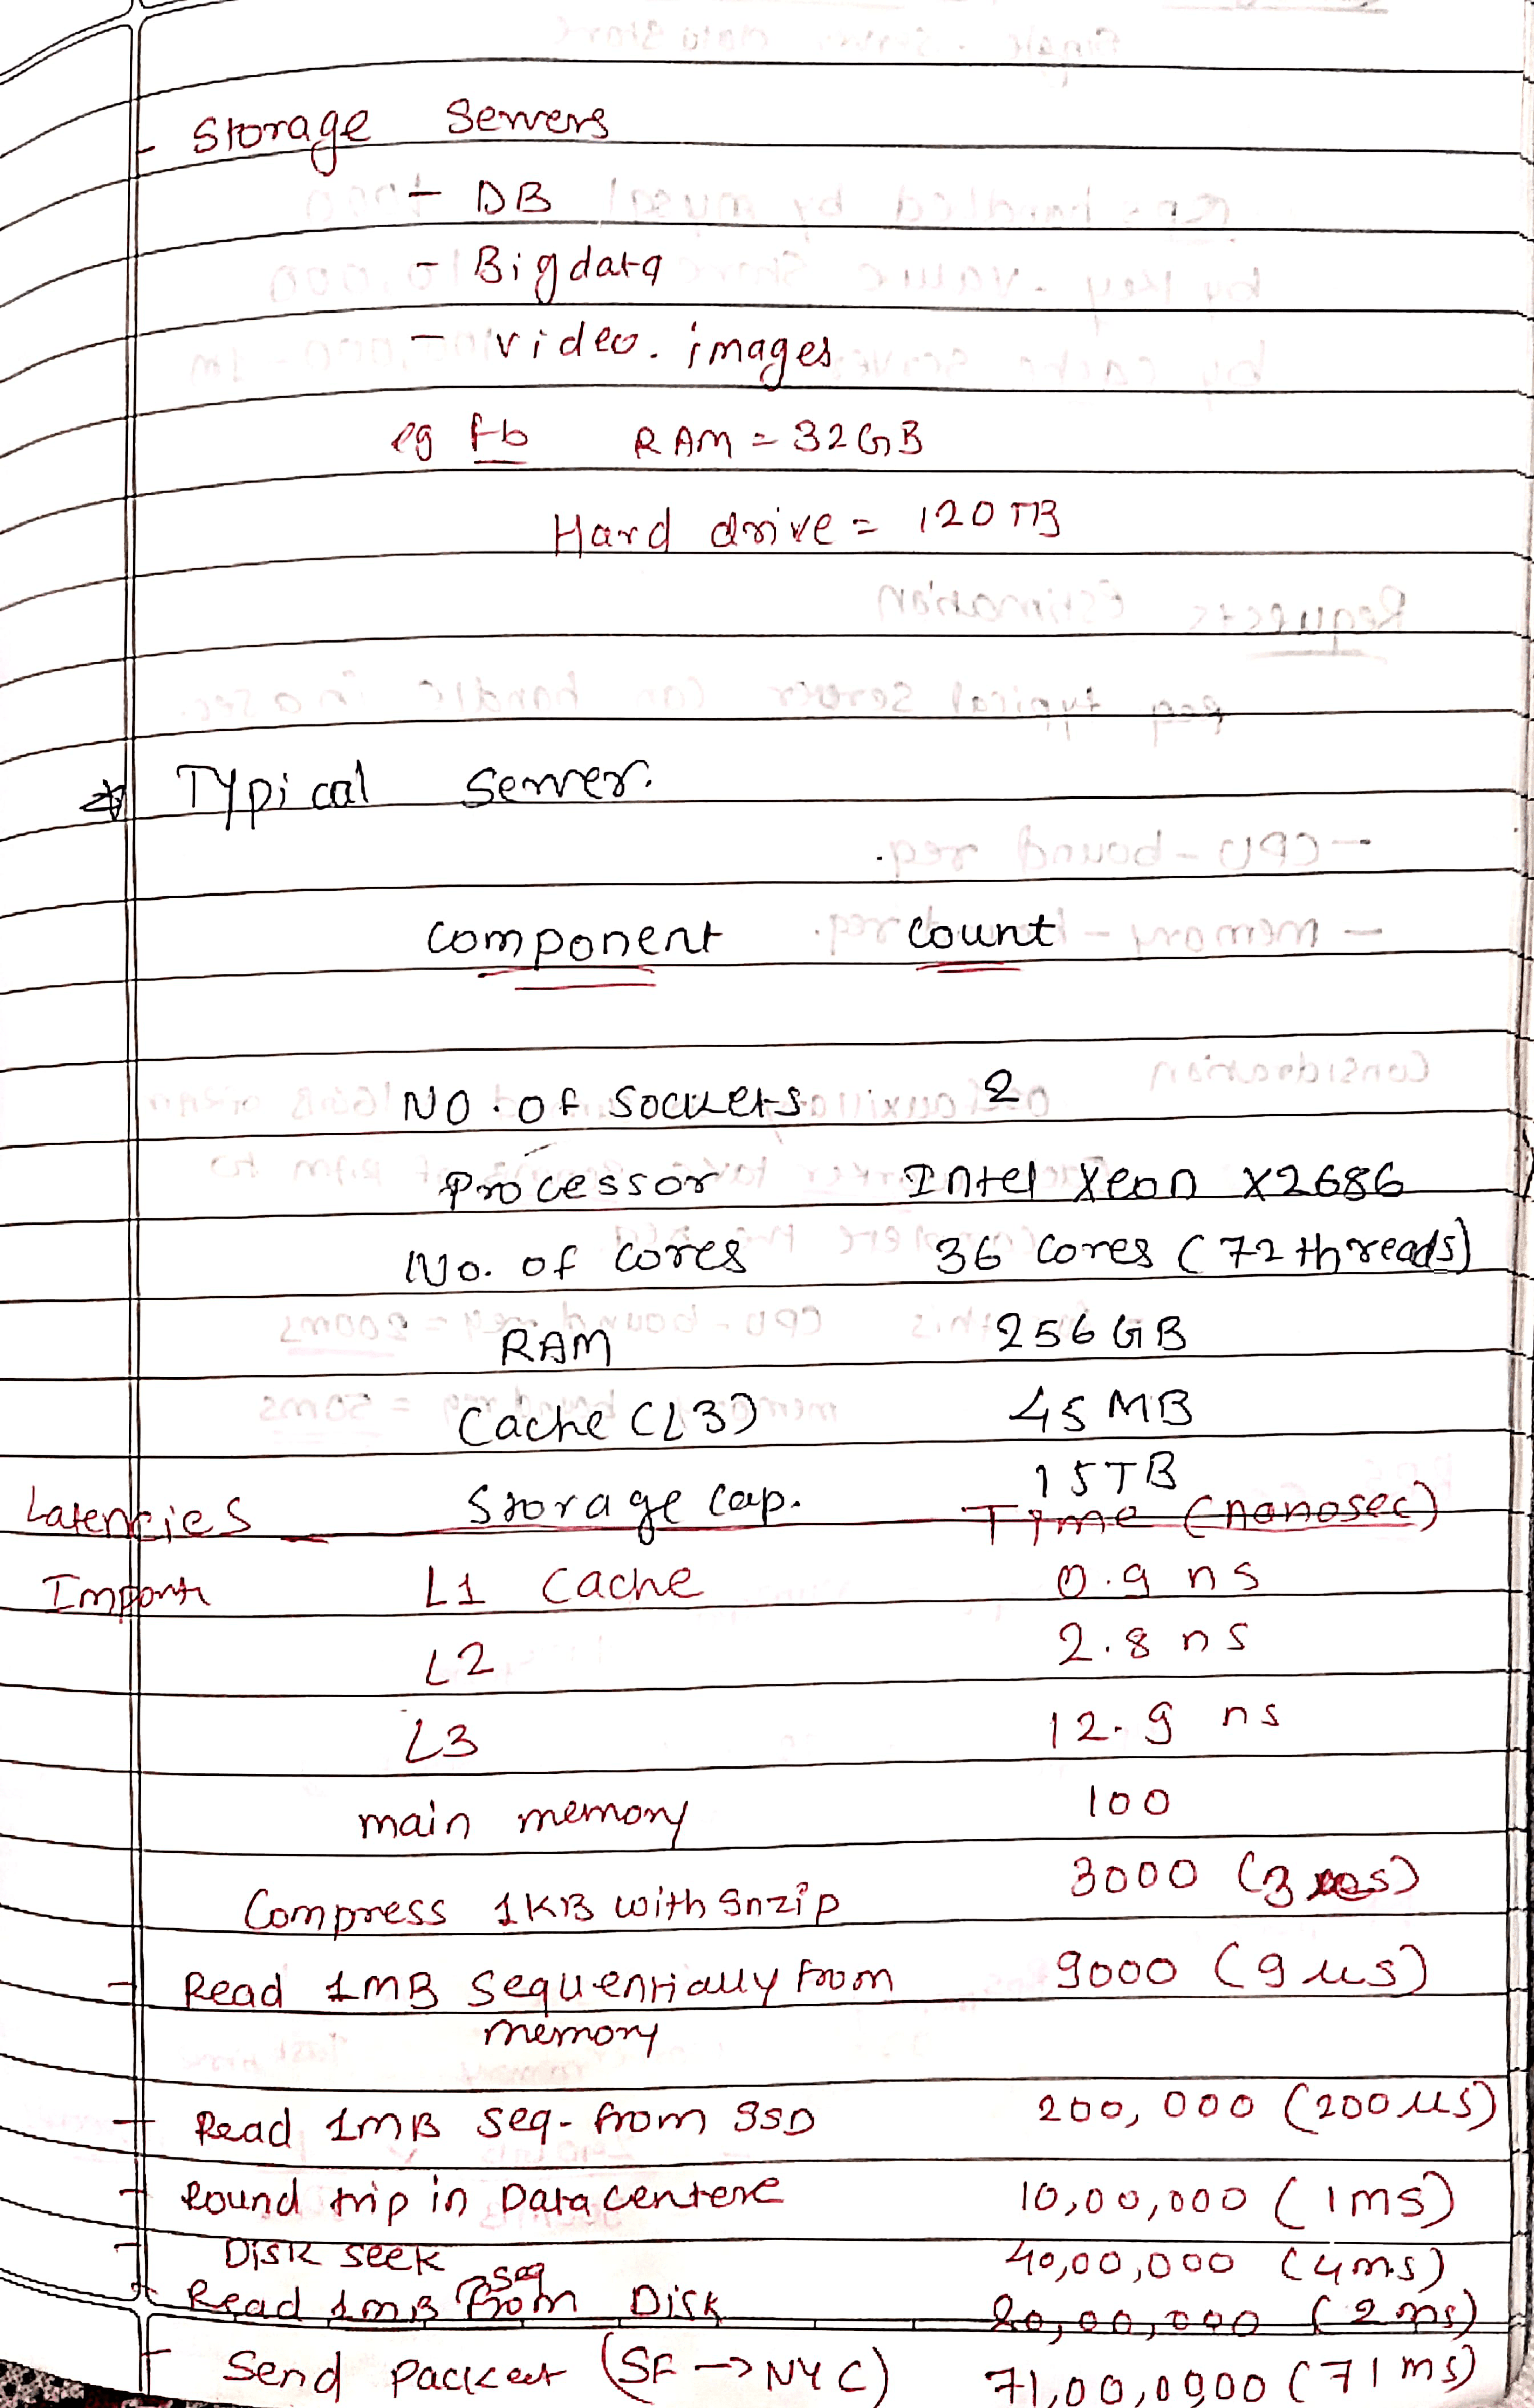 - Storage Servers
- DB
- Bigdata
- video. images
eg fb RAM = 32GB
Hard drive = 120TB
Typical Server.
Component Count
No. of Sockets 2
Processor Intel Xeon X2686
No. of Cores 36 Cores (72 threads)
RAM 256 GB
Cache (L3) 45 MB
Storage Cap. 15TB
Latencies Time (nanosec)
L1 Cache 0.9 ns
L2 2.8 ns
L3 12.9 ns
main memory 100
Compress 1KB with Snzip 3000
- Read 1MB Sequentially from 9000 (9 us)
memory
- Read 1MB Seq- from SSD 200,000 (200us)
- Round trip in Datacentere 10,00,000 (1ms)
- Disk seek 40,00,000 (4ms)
- Read 1MB seq from Disk 20,00,000 (2ms)
- Send Packet (SF → NYC) (71ms)